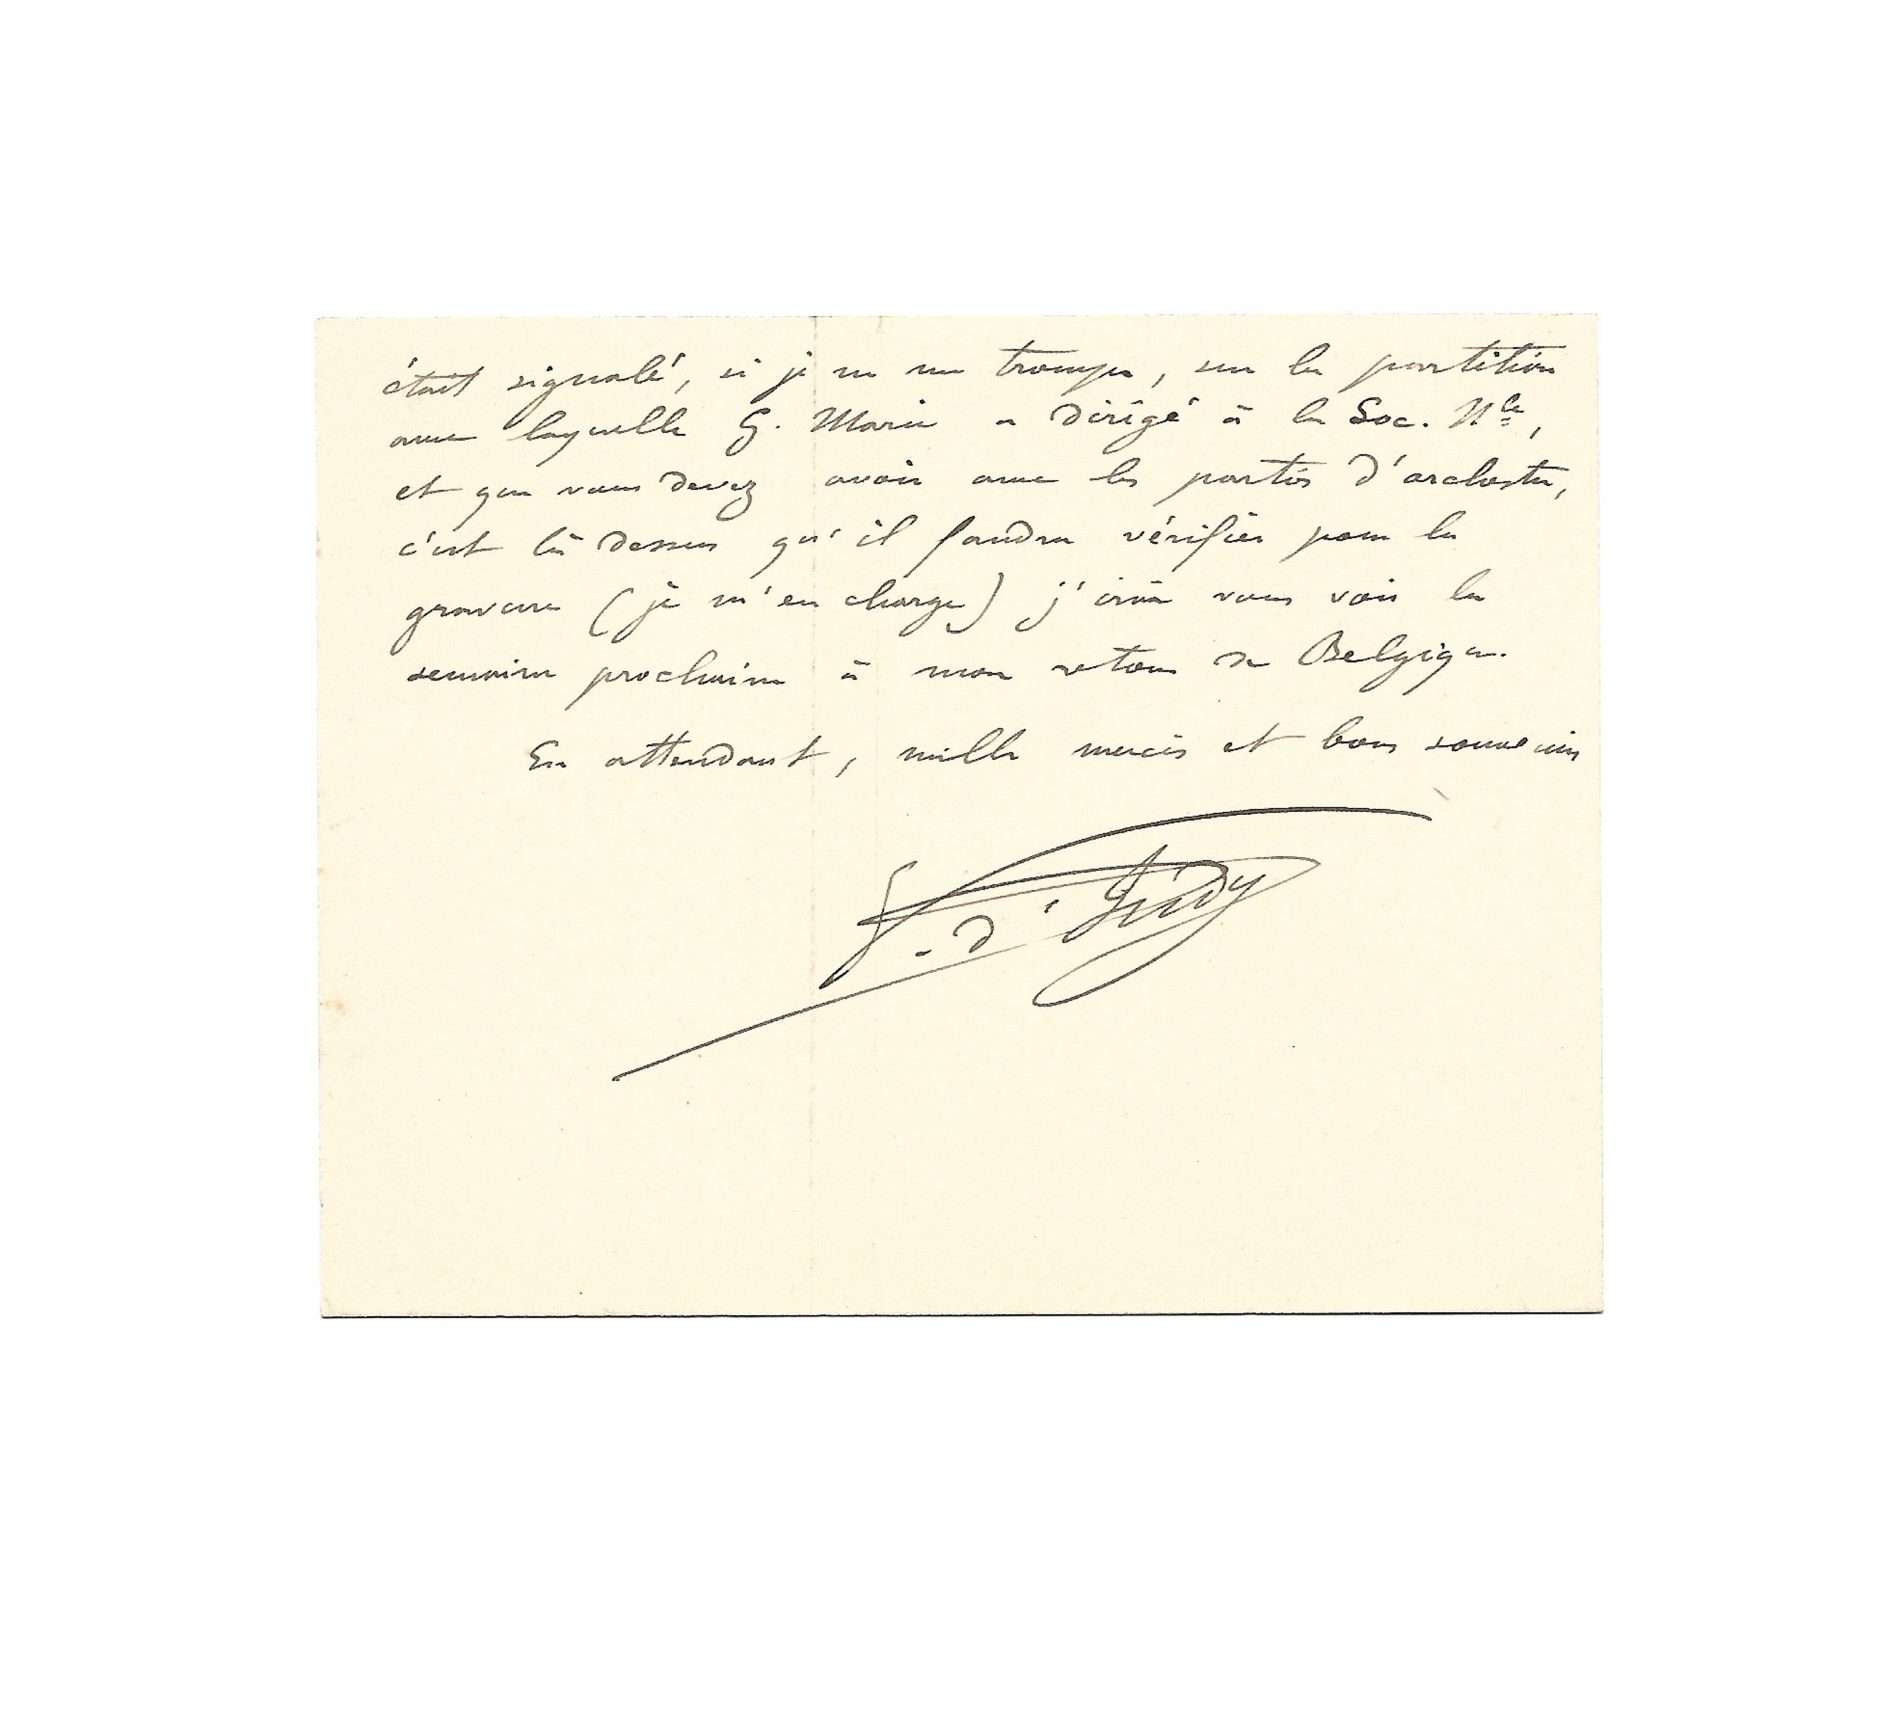 était signalé, si je ne me trompe, sur la partition
avec laquelle G. Marie a dirigé à la Soc. Nle,
et que vous devez avoir avec les parties d'orchestre,
c'est là dessus qu'il faudra vérifier pour la
gravure (je m'en charge) j'irai vous voir la
semaine prochaine à mon retour de Belgique.
En attendant, mille mercis et bons souvenirs
V. d'Indy